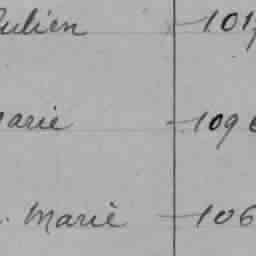 Julien - 101
Marie - 1096
. Marie - 106